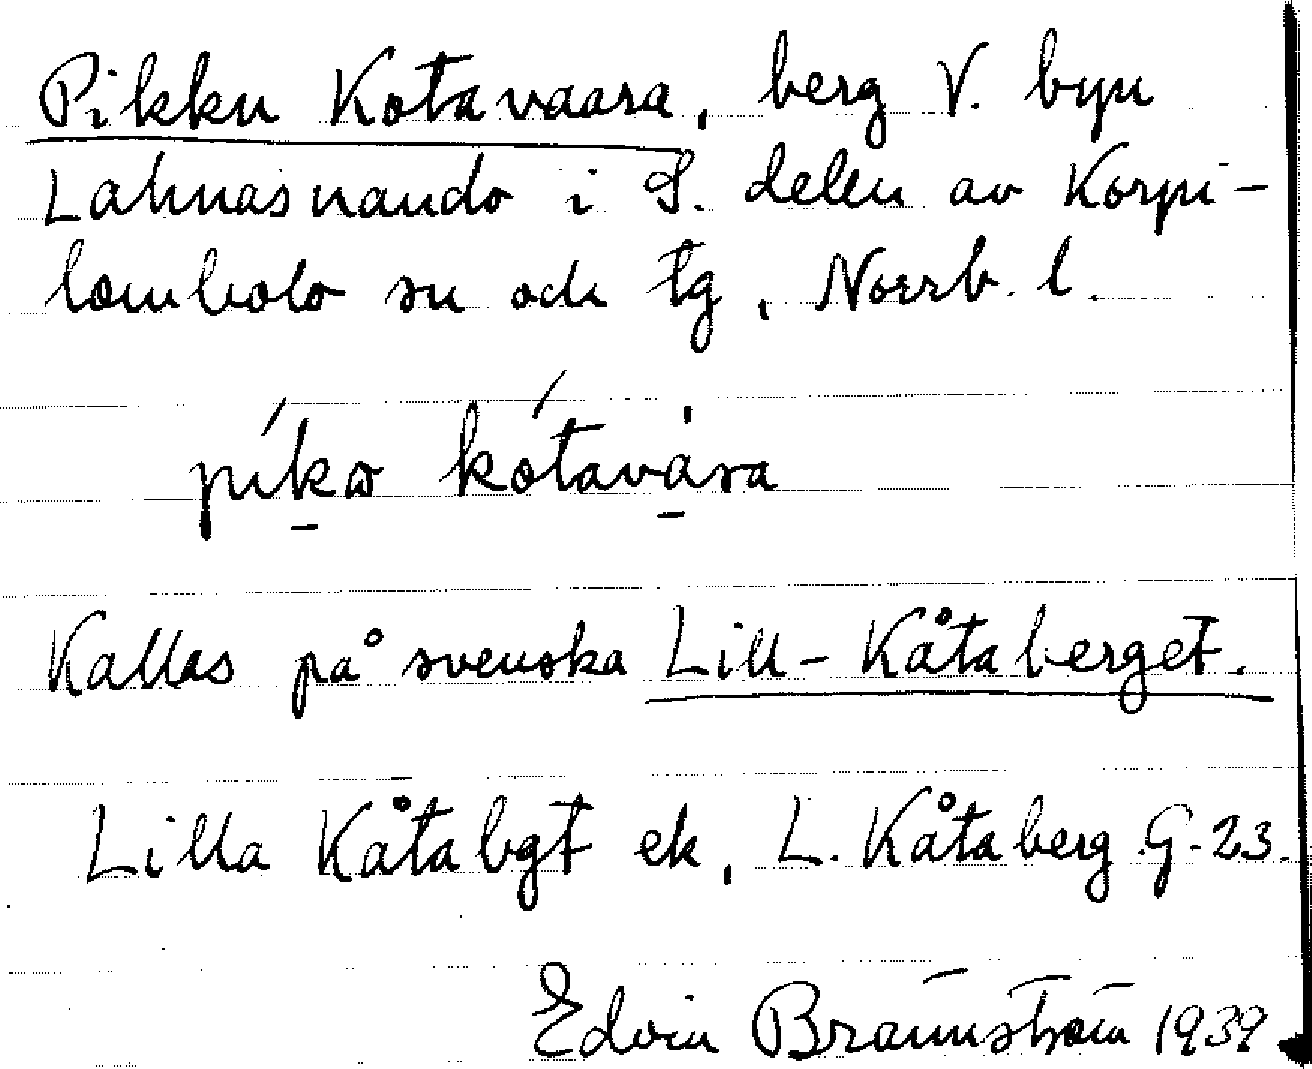 Pikku Kotavaara, berg V. byn
Lahnasuando i S. delen av Korpi-
lombolo sn och tg, Norrb. l.
píkω kótavàra
Kallas på svenska Lill-Kåtaberget.
Lilla Kåtabgt ek, L. Kåtaberg G-23.
Edvin Brännström 1939